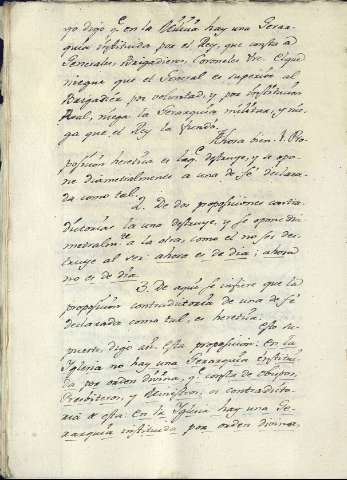 yo digo q.e en la Milicia hay una Gerar-
quia instituida por el Rey, que consta de
Generales, Brigadieres, Coroneles &c. El que
niegue que el General es superior al
Brigadier por voluntad, y por institucion
Real, niega la Gerarquia militar, y nie-
ga que el Rey la fundó.
Ahora bien. 1. Pro-
posicion heretica es la q.e destruye, y se opo-
ne diametralmente a una de fé declara-
da como tal.
2. De dos proposiciones contra-
dictorias la una destruye, y se opone dia-
metralm.te a la otra, como el no ser des-
truye al ser: ahora es de dia; ahora
no es de dia.
3. De aqui se infiere que la
proposicion contradictoria de una de fé
declarada como tal, es heretica.
Esto su-
puesto, digo asi. Esta proposicion: En la
Iglesia no hay una Gerarquia institui-
da por orden divina, q.e consta de Obispos,
Presbiteros, y Ministros, es contradicto-
ria de esta: En la Iglesia hay una Ge-
rarquia instituida por orden divina,